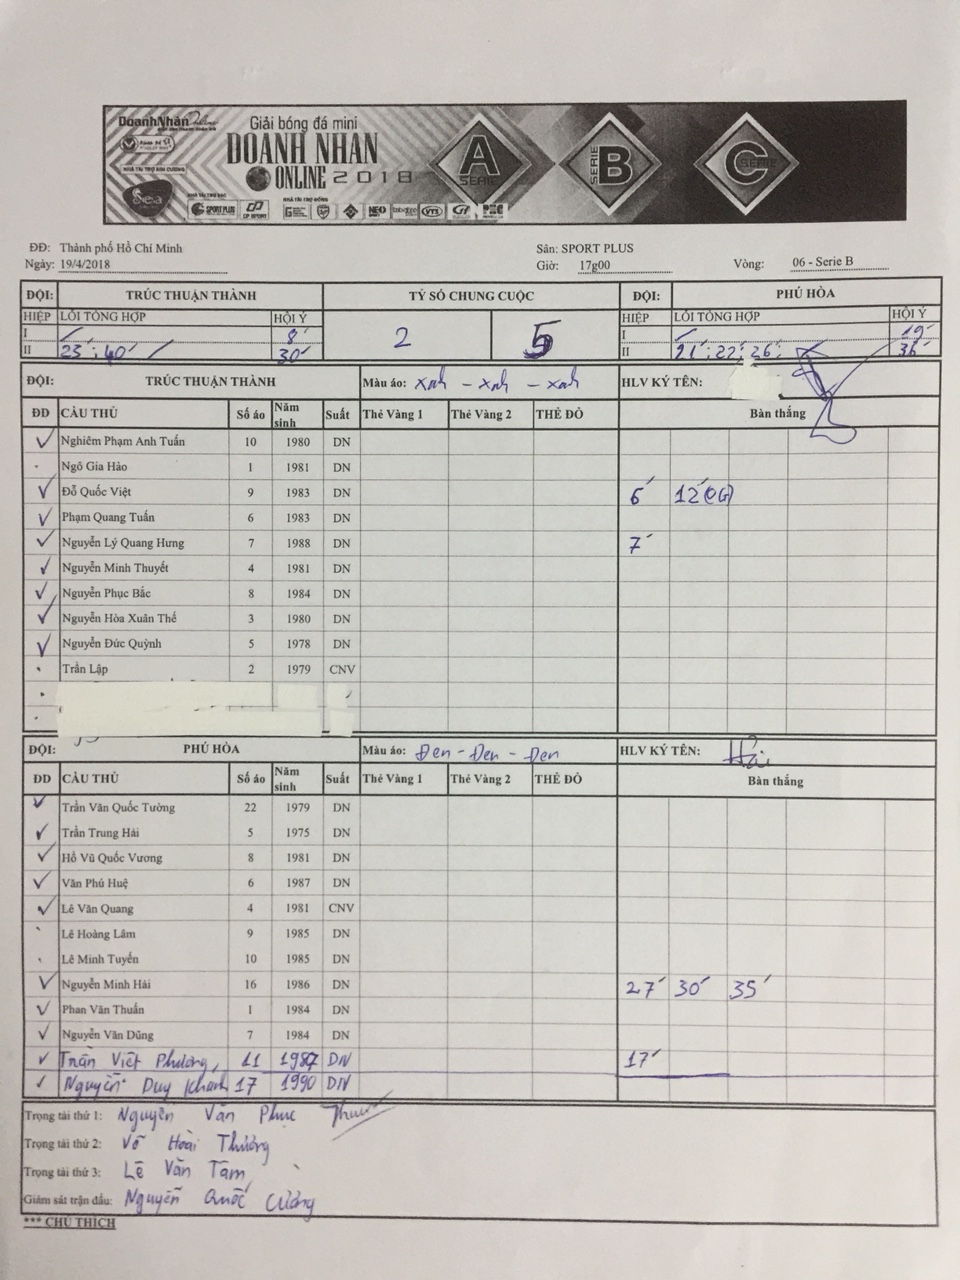 DoanhNhân Online
Giải bóng đá mini
DOANH NHÂN
ONLINE 2018
A SERIE
SERIE B
SERIE C
NHÀ TÀI TRỢ KIM CƯƠNG
Sea
NHÀ TÀI TRỢ BẠC
NHÀ TÀI TRỢ ĐỒNG
SPORT PLUS
CP SPORT
NEO
VTS
ĐĐ: Thành phố Hồ Chí Minh Sân: SPORT PLUS
Ngày: 19/4/2018 Giờ: 17g00 Vòng: 06 - Serie B
ĐỘI: TRÚC THUẬN THÀNH TỶ SỐ CHUNG CUỘC ĐỘI: PHÚ HÒA
HIỆP LỖI TỔNG HỢP HỘI Ý 2 5 HIỆP LỖI TỔNG HỢP HỘI Ý
I 8' I 19'
II 23'; 40' 30' II 21'; 22'; 26'; 36'
ĐỘI: TRÚC THUẬN THÀNH Màu áo: xnh - xnh - xnh HLV KÝ TÊN:
ĐD CẦU THỦ Số áo Năm sinh Suất Thẻ Vàng 1 Thẻ Vàng 2 THẺ ĐỎ Bàn thắng
Nghiêm Phạm Anh Tuấn 10 1980 DN
Ngô Gia Hào 1 1981 DN
Đỗ Quốc Việt 9 1983 DN 6' 12'(OG)
Phạm Quang Tuấn 6 1983 DN
Nguyễn Lý Quang Hưng 7 1988 DN 7'
Nguyễn Minh Thuyết 4 1981 DN
Nguyễn Phục Bắc 8 1984 DN
Nguyễn Hòa Xuân Thế 3 1980 DN
Nguyễn Đức Quỳnh 5 1978 DN
Trần Lập 2 1979 CNV
ĐỘI: PHÚ HÒA Màu áo: Đen - Đen - Đen HLV KÝ TÊN: Hải
ĐD CẦU THỦ Số áo Năm sinh Suất Thẻ Vàng 1 Thẻ Vàng 2 THẺ ĐỎ Bàn thắng
Trần Văn Quốc Tường 22 1979 DN
Trần Trung Hải 5 1975 DN
Hồ Vũ Quốc Vương 8 1981 DN
Văn Phú Huệ 6 1987 DN
Lê Văn Quang 4 1981 CNV
Lê Hoàng Lâm 9 1985 DN
Lê Minh Tuyển 10 1985 DN
Nguyễn Minh Hải 16 1986 DN 27' 30' 35'
Phan Văn Thuấn 1 1984 DN
Nguyễn Văn Dũng 7 1984 DN
Trần Việt Phương, 11 1987 DN 17'
Nguyễn Duy Khanh 17 1990 DN
Trọng tài thứ 1: Nguyễn Văn Phục
Trọng tài thứ 2: Võ Hoài Thương
Trọng tài thứ 3: Lê Văn Tâm
Giám sát trận đấu: Nguyễn Quốc Cường
*** CHÚ THÍCH